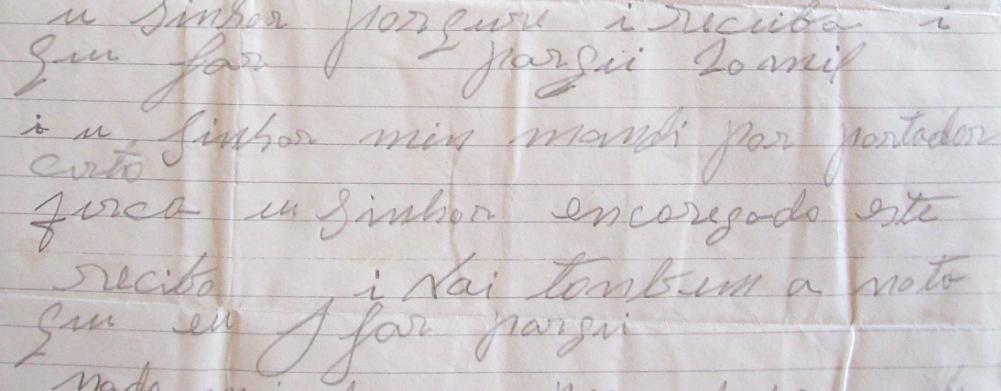 u sinhor porqure i reciba i
qui far parqui 20 mil
i u sinhor min mandi par portador
certo
furca eu sinhor encaregado este
recibo i vai tonbem a noto
qui eu far parqui
nada